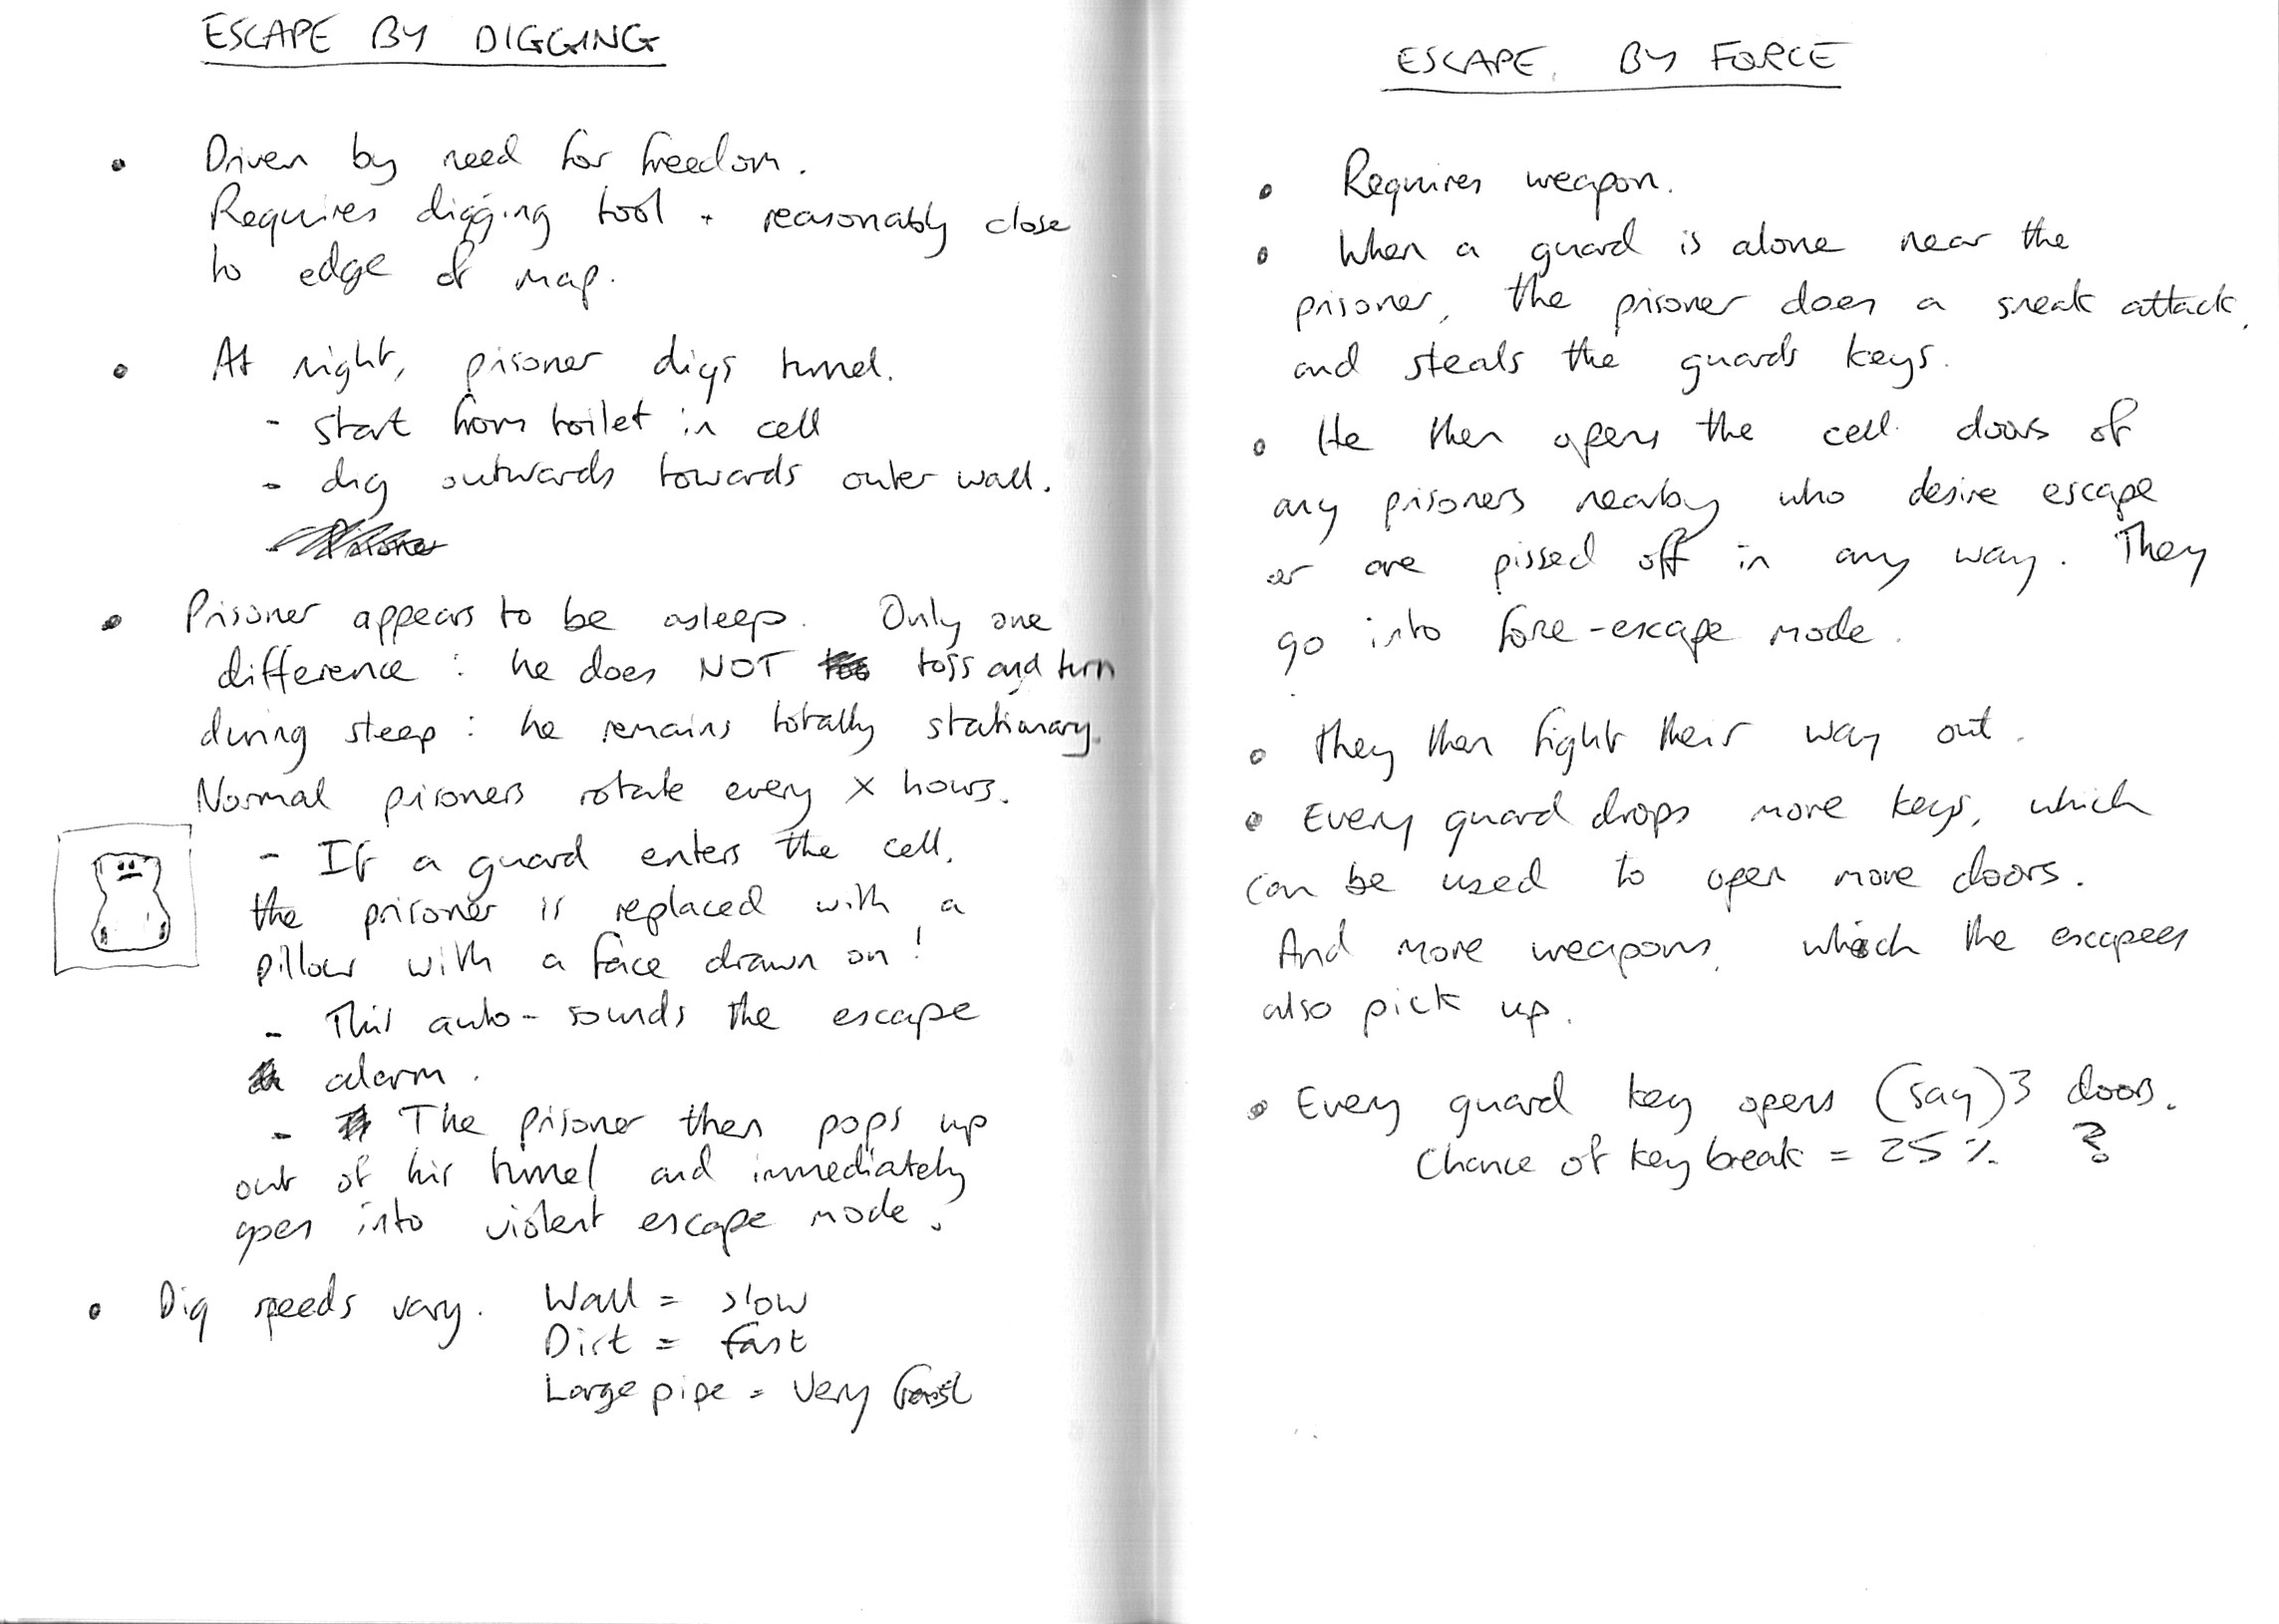 ESCAPE BY DIGGING
• Driven by need for freedom.
Requires digging tool + reasonably close
to edge of map.
• At night, prisoner digs tunnel.
- start from toilet in cell
- dig outwards towards outer wall.
- Prisoner
• Prisoner appears to be asleep. Only one
difference : he does NOT toss and turn
during sleep : he remains totally stationary.
Normal prisoners rotate every X hours.
- If a guard enters the cell,
the prisoner is replaced with a
pillow with a face drawn on!
- This auto-sounds the escape
alarm.
- The prisoner then pops up
out of his tunnel and immediately
goes into violent escape mode.
• Dig speeds vary. Wall = slow
Dirt = fast
Large pipe = Very fast
ESCAPE BY FORCE
• Requires weapon.
• When a guard is alone near the
prisoner, the prisoner does a sneak attack,
and steals the guards keys.
• He then opens the cell doors of
any prisoners nearby who desire escape
or are pissed off in any way. They
go into force-escape mode.
• They then fight their way out.
• Every guard drops more keys, which
can be used to open more doors.
And more weapons, which the escapees
also pick up.
• Every guard key opens (say) 3 doors.
Chance of key break = 25% ?